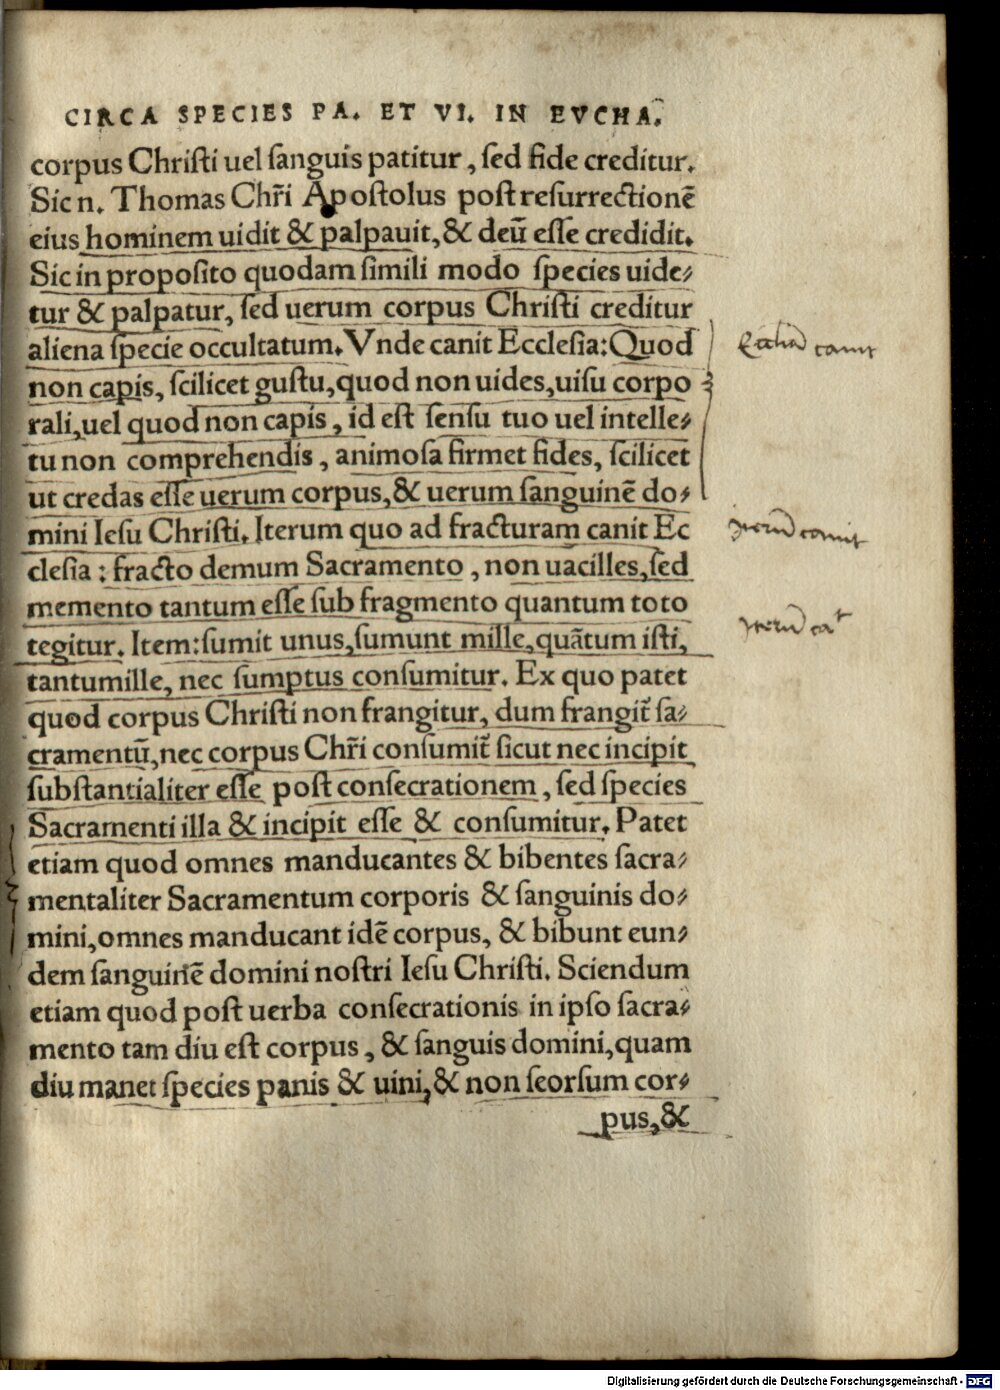 CIRCA SPECIES PA. ET VI. IN EVCHA.
corpus Chriſti uel ſanguis patitur, ſed fide creditur.
Sic n. Thomas Chr̃i Apoſtolus poſt reſurrectionẽ
eius hominem uidit & palpauit, & deũ eſſe credidit.
Sic in propoſito quodam ſimili modo ſpecies uide-
tur & palpatur, ſed uerum corpus Chriſti creditur
aliena ſpecie occultatum. Vnde canit Eccleſia: Quod
non capis, ſcilicet guſtu, quod non uides, uiſu corpo
rali, uel quod non capis, id eſt ſenſu tuo uel intelle-
tu non comprehendis, animoſa firmet fides, ſcilicet
ut credas eſſe uerum corpus, & uerum ſanguinẽ do-
mini Ieſu Chriſti. Iterum quo ad fracturam canit Ec
cleſia: fracto demum Sacramento, non uacilles, ſed
memento tantum eſſe ſub fragmento quantum toto
tegitur. Item: ſumit unus, ſumunt mille, quãtum iſti,
tantumille, nec ſumptus conſumitur. Ex quo patet
quod corpus Chriſti non frangitur, dum frangit̃ ſa-
cramentũ, nec corpus Chr̃i conſumit̃ ſicut nec incipit
ſubſtantialiter eſſe poſt conſecrationem, ſed ſpecies
Sacramenti illa & incipit eſſe & conſumitur. Patet
etiam quod omnes manducantes & bibentes ſacra-
mentaliter Sacramentum corporis & ſanguinis do-
mini, omnes manducant idẽ corpus, & bibunt eun-
dem ſanguinẽ domini noſtri Ieſu Chriſti. Sciendum
etiam quod poſt uerba conſecrationis in ipſo ſacra-
mento tam diu eſt corpus, & ſanguis domini, quam
diu manet ſpecies panis & uini, & non ſeorſum cor-
pus, &
canit
canit
Digitalisierung gefördert durch die Deutsche Forschungsgemeinschaft - DFG